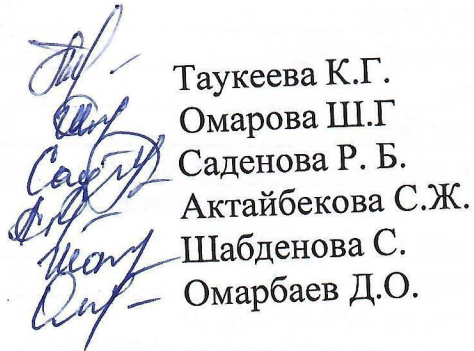 Таукеева К.Г.
Омарова Ш.Г
Саденова Р. Б.
Актайбекова С.Ж.
Шабденова С.
Омарбаев Д.О.